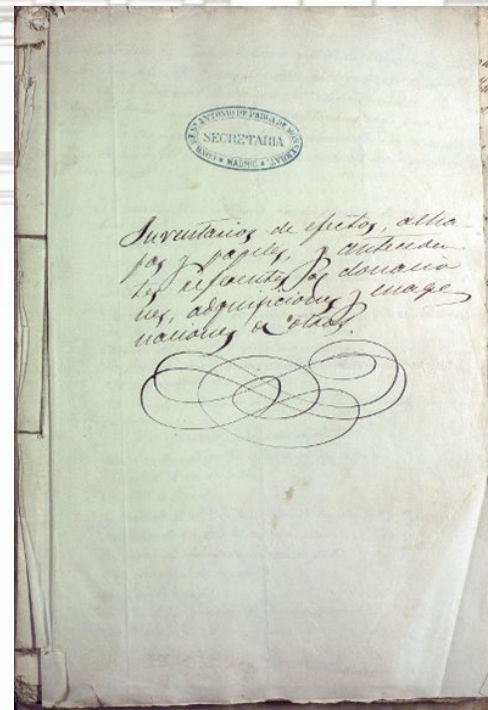 CONG. DE Sn. ANTONIO DE PADUA DE MONSERRAT
SECRETARIA
MADRID
Inventarios de efectos, alha-
jas y papeles, y anteceden-
tes referentes á donacio
nes, adquisiciones y enage
naciones de otros.